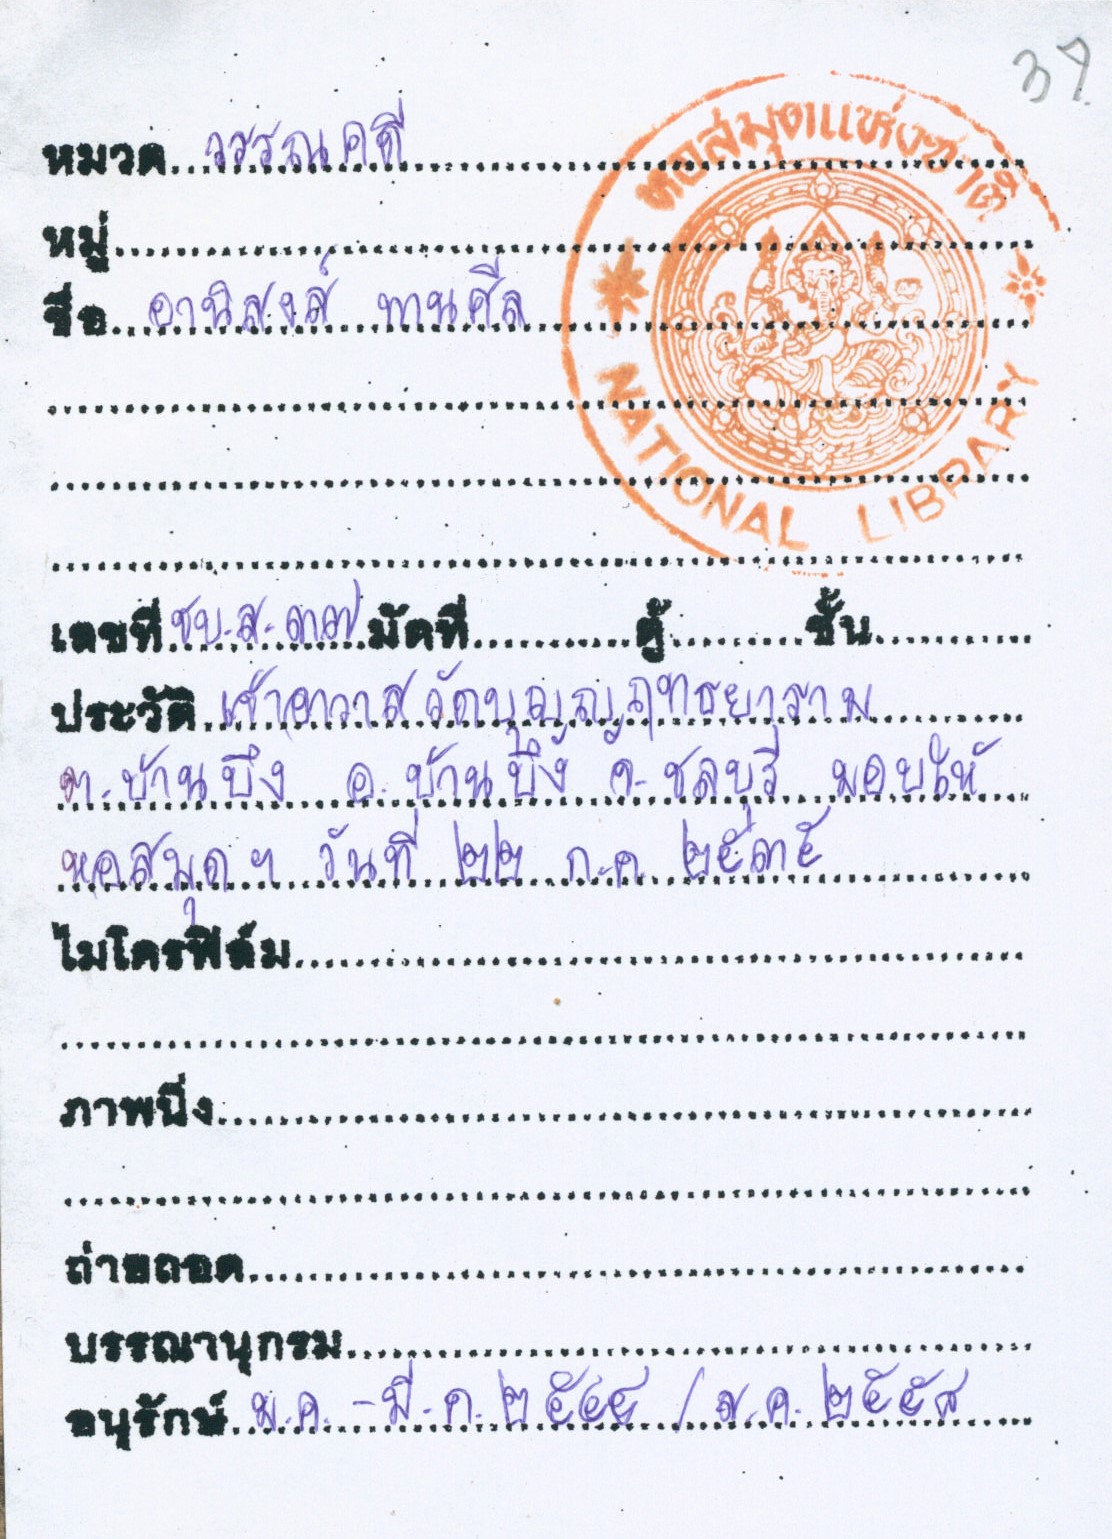 37.
หอสมุดแห่งชาติ
NATIONAL LIBRARY
หมวด วรรณคดี
หมู่
ชื่อ อานิสงส์ ทานศีล
เลขที่ ชบ.ส. ๓๗ มัดที่ ตู้ ชั้น
ประวัติ เจ้าอาวาสวัดบุญญฤทธยาราม
ต.บ้านบึง อ.บ้านบึง จ.ชลบุรี มอบให้
หอสมุดฯ วันที่ ๒๒ ก.ค. ๒๕๓๕
ไมโครฟิล์ม
ภาพนิ่ง
ถ่ายถอด
บรรณานุกรม
อนุรักษ์ ม.ค. - มี.ค. ๒๕๔๕ / ส.ค. ๒๕๕๘